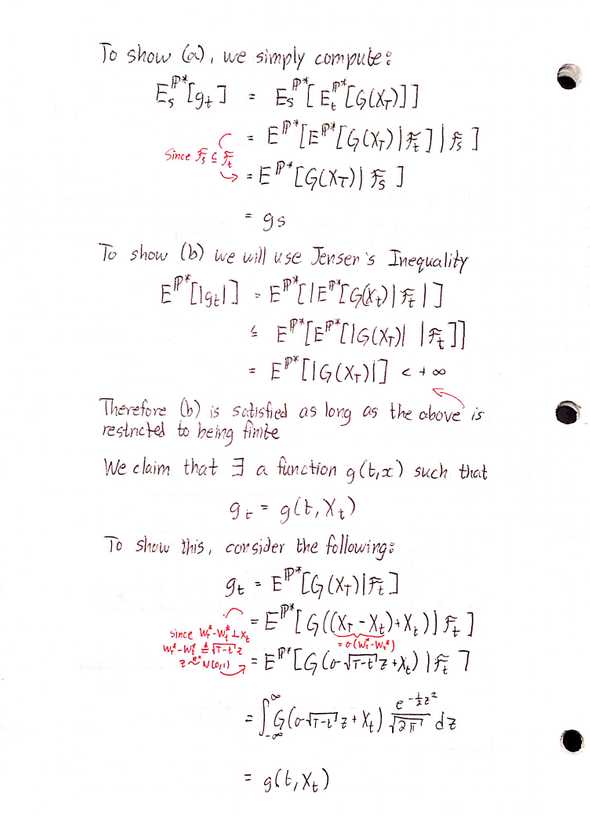 To show (a), we simply compute:
E_s^{ℙ*}[g_t] = E_s^{ℙ*}[E_t^{ℙ*}[G(X_T)]]
= E^{ℙ*}[E^{ℙ*}[G(X_T)|ℱ_t]|ℱ_s]
Since ℱ_s ⊆ ℱ_t
= E^{ℙ*}[G(X_T)|ℱ_s]
= g_s
To show (b) we will use Jensen's Inequality
E^{ℙ*}[|g_t|] = E^{ℙ*}[|E^{ℙ*}[G(X_t)|ℱ_t]|]
≤ E^{ℙ*}[E^{ℙ*}[|G(X_T)| |ℱ_t]]
= E^{ℙ*}[|G(X_T)|] < +∞
Therefore (b) is satisfied as long as the above is
restricted to being finite
We claim that ∃ a function g(t,x) such that
g_t = g(t,X_t)
To show this, consider the following:
g_t = E^{ℙ*}[G(X_T)|ℱ_t]
= E^{ℙ*}[G((X_T - X_t)+X_t)|ℱ_t]
= σ(W_T^* - W_t^*)
since W_T^* - W_t^* ⊥ X_t
W_T^* - W_t^* ≜ √(T-t) z
z ~ N(0,1)
= E^{ℙ*}[G(σ√(T-t) z + X_t)|ℱ_t]
= ∫_{-∞}^{∞} G(σ√(T-t) z + X_t) e^{-½z²}/√(2π) dz
= g(t,X_t)